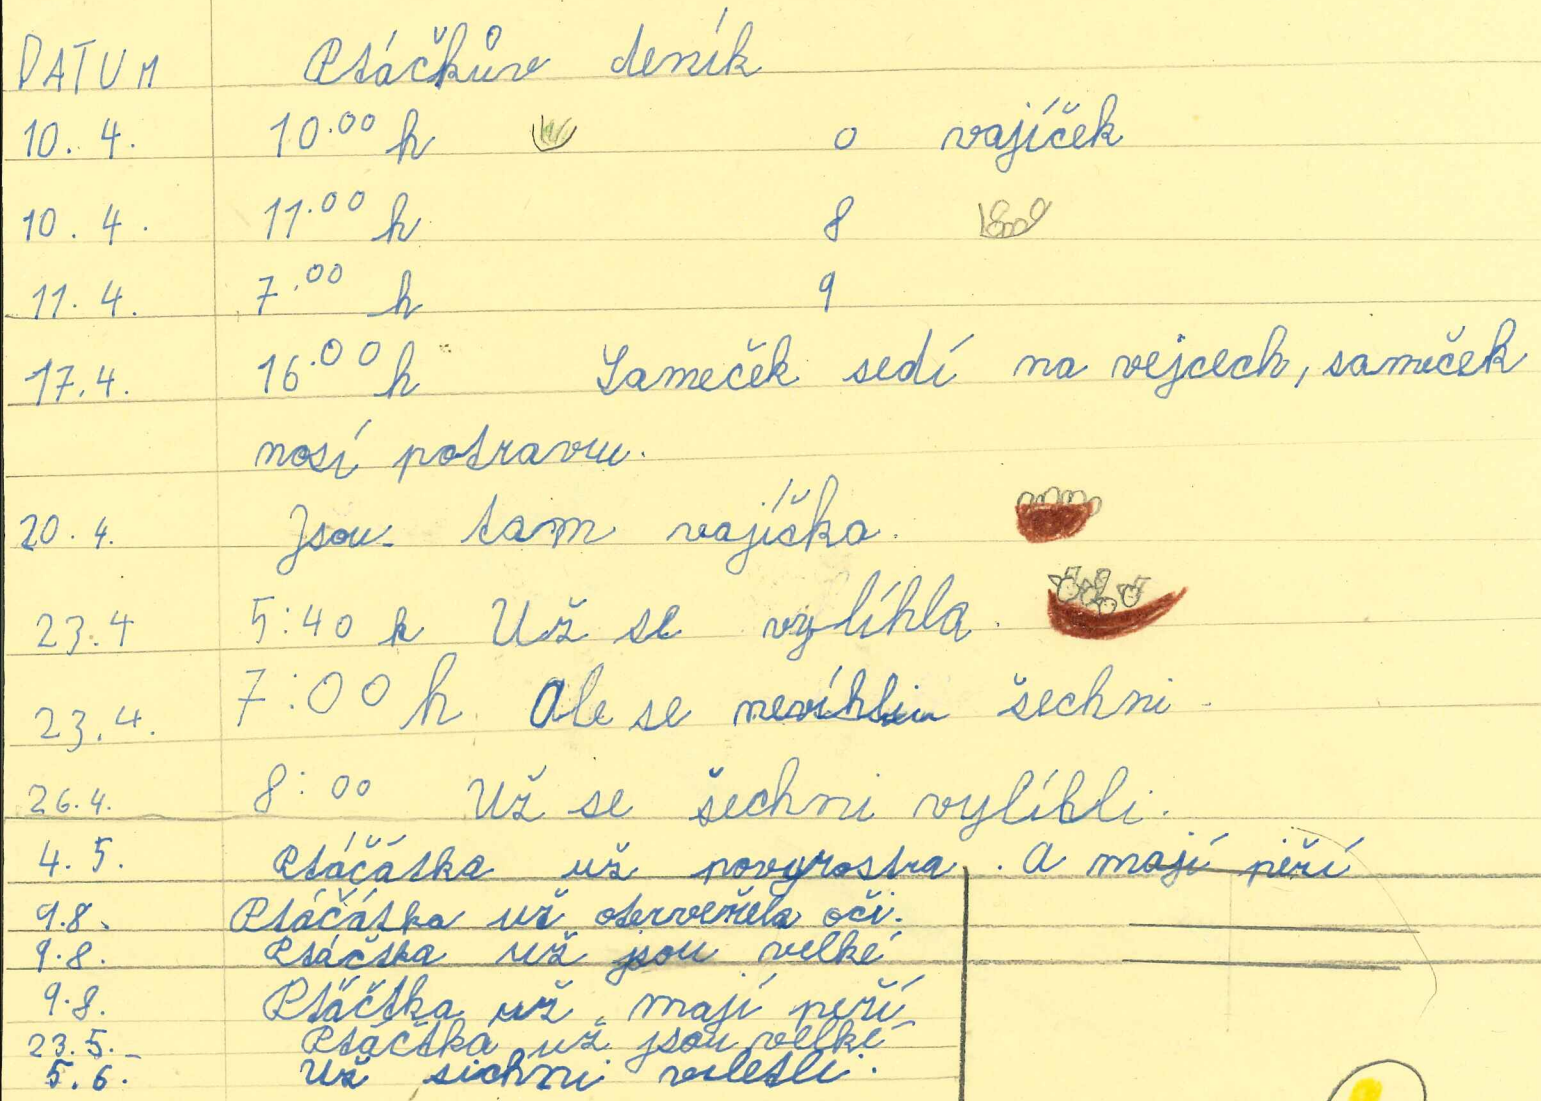 DATUM Ptáčkův deník
10. 4. 10.00 h 0 vajíček
10. 4. 11.00 h 8
11. 4. 7.00 h 9
17.4. 16.00 h Sameček sedí na vejcech, sameček
nosí potravu.
20. 4. Jsou tam vajíčka.
23.4 5:40 h Už se vylíhla.
23.4. 7:00 h Ale se šechni.
26.4. 8:00 Už se šechni vylíhli.
4. 5. Ptáčátka už povyrostra. A mají peří
9.8. Ptáčátka už oči.
9.8. Ptáčtka už jsou velké
9.8. Ptáčtka už mají peří
23.5. Ptáčtka už jsou velké
5.6. Už sichni viletli.